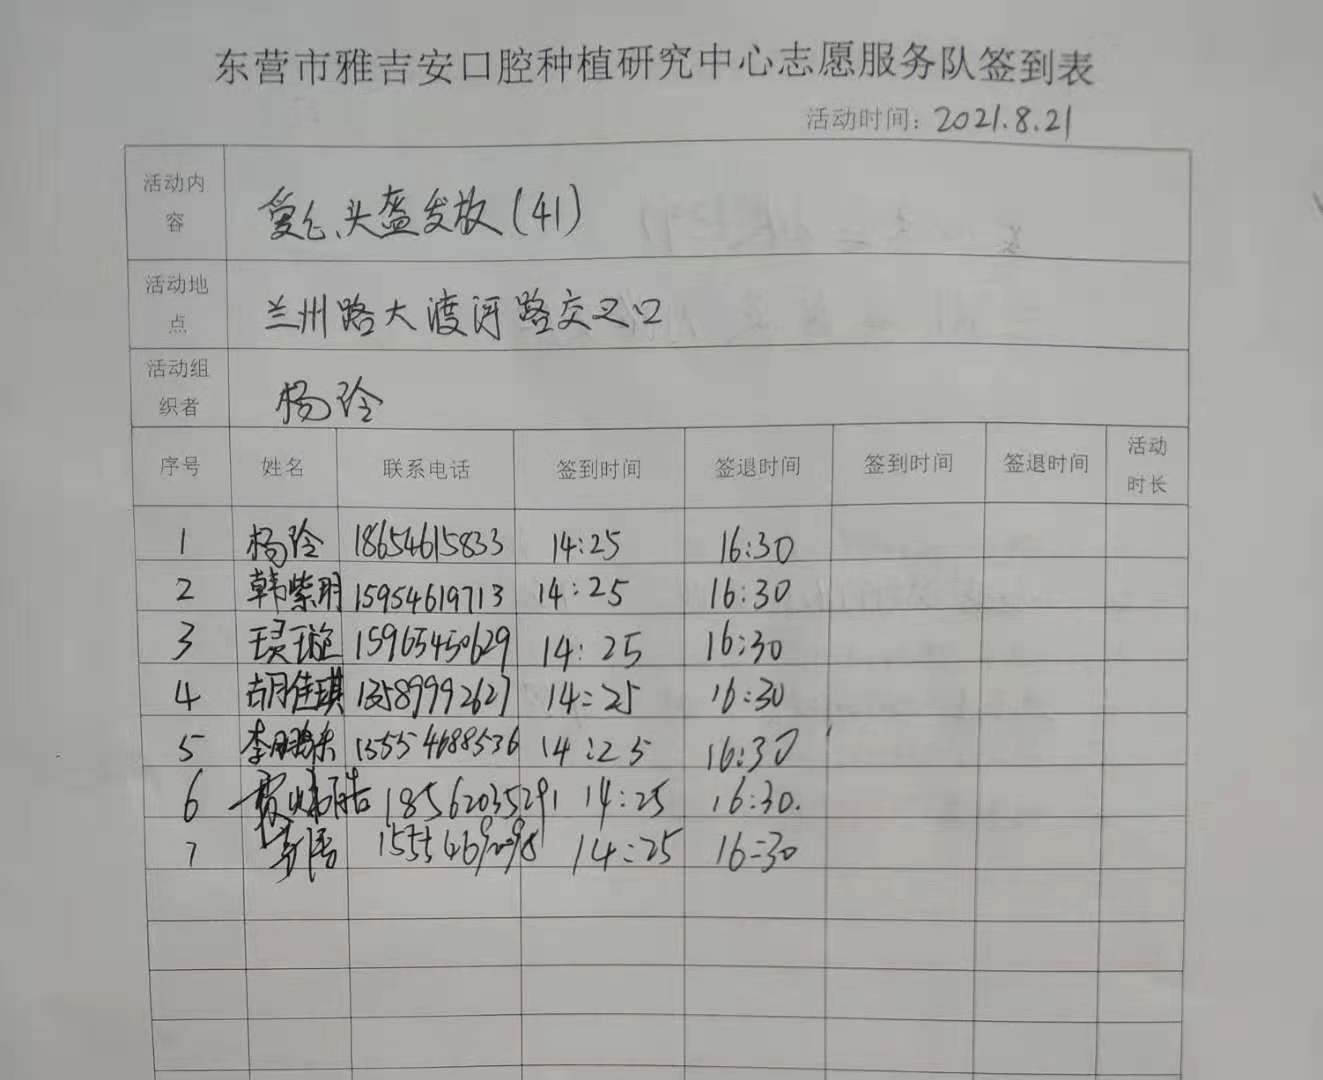 东营市雅吉安口腔种植研究中心志愿服务队签到表
活动时间：2021.8.21
活动内容 爱心头盔发放(41)
活动地点 兰州路大渡河路交叉口
活动组织者 杨玲
序号 姓名 联系电话 签到时间 签退时间 签到时间 签退时间 活动时长
1 杨玲 18654615833 14:25 16:30
2 韩紫玥 15954619713 14:25 16:30
3 15965450629 14:25 16:30
4 胡佳琪 13589992627 14:25 16:30
5 李鹏 15554688536 14:25 16:30
6 18562035291 14:25 16:30.
7 14:25 16:30